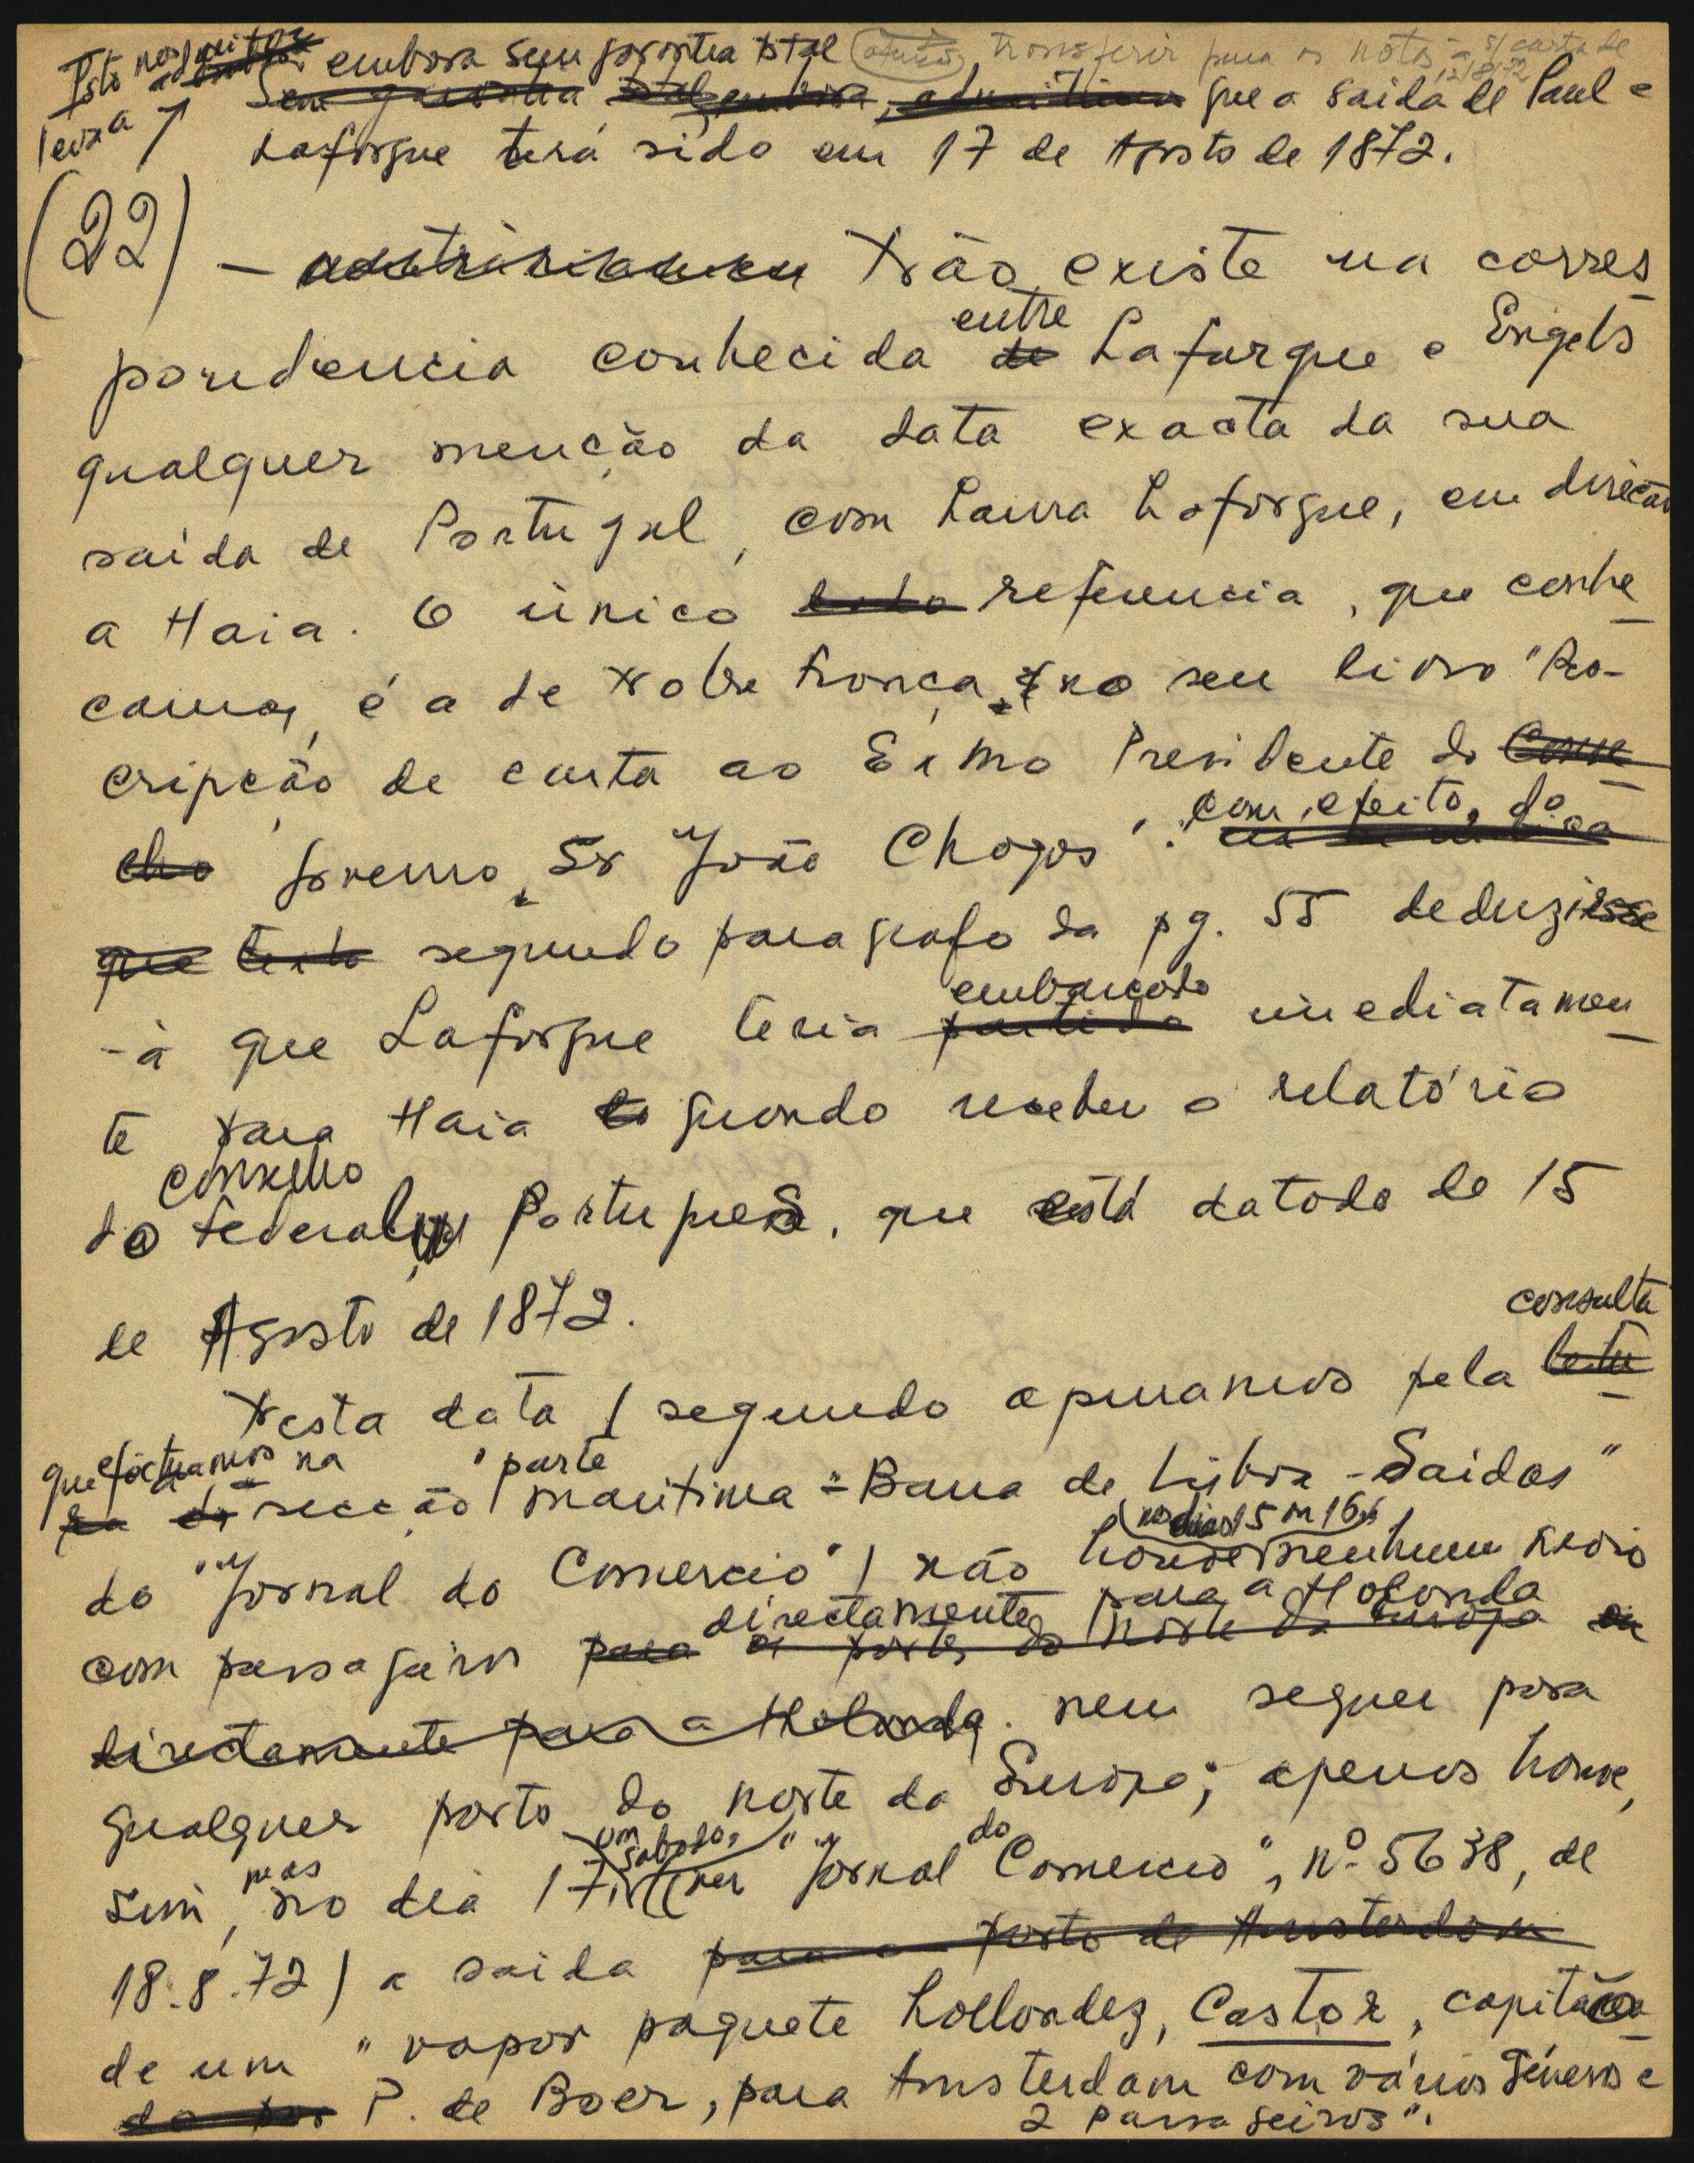 Isto nos embora sem garantia total transferir para as notas s/ carta de
12/8/72
leva a que a saida de Paul e
Lafargue terá sido em 17 de Agosto de 1872.
(22) — Não existe na corres
pondencia conhecida entre Lafargue e Engels
qualquer menção da data exacta da sua
saída de Portugal, com Laura Lafargue, em direcão
a Haia. O único referencia, que conhe
camos, é a de Nobre França, no seu livro "Pro-
cripcão de carta ao Exmo Presidente do
Governo, Sr João Chagas". com efeito, do
segundo paragrafo da pg. 55 deduzir-se
-á que Lafargue teria embarcado imediatamen
te para Haia quando recebeu o relatório
do Conselho Federal Portugues, que está datado de 15
de Agosto de 1872.
Nesta data (segundo apuramos pela consulta
que efectuamos na secção "parte maritima - Barra de Lisboa - Saidas"
do "Jornal do Comercio") não houve (nos dias 15 ou 16) nenhum navio
com passageiros directamente para a Holanda
nem sequer para
qualquer porto do norte da Europa; apenas houve,
sim, mas no dia 17, um sabado, (ver "Jornal do Comercio", nº 5638, de
18.8.72) a saida
de um "vapor paquete hollandez, Castor, capitão
P. de Boer, para Amsterdam com vários géneros e
2 passageiros".